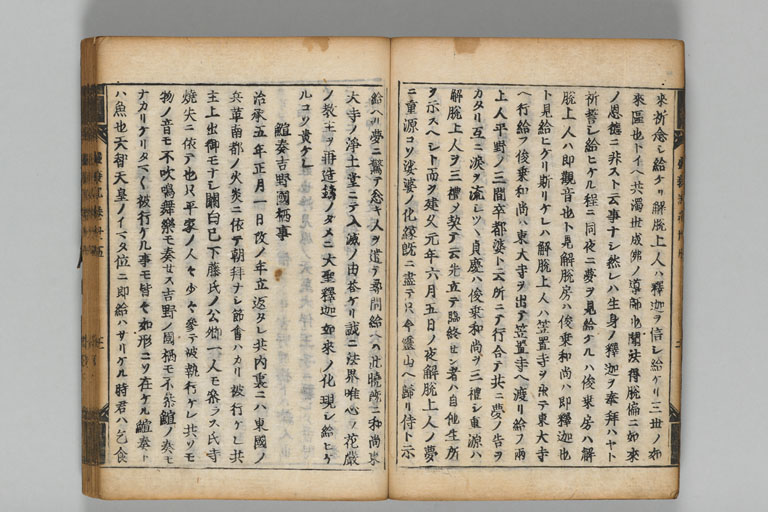 來祈念シ給ケリ解脱上人ハ釋迦ヲ信シ給ケリ三世ノ如
來區也トイヘ共濁世成佛ノ導師也聞法得脱偏ニ如來
ノ恩德ニ非スト云事ナシ然レハ生身ノ釋迦ヲ奉拜ハヤト
祈誓シ給ヒケル程ニ同夜ニ夢ヲ見給ケルハ俊乗房ハ解
脱上人ハ即觀音也ト見解脱房ハ俊乗和尚ハ即釋迦也
ト見給ヒケリ斯リケレハ解脱上人ハ笠置寺ヲ出テ東大寺
ヘ行給フ俊乗和尚ハ東大寺ヲ出テ笠置寺ヘ渡リ給フ兩
上人平野ノ三間卒都婆ト云所ニテ行合テ共ニ夢ノ告ヲ
カタリ互ニ淚ヲ流シツヽ貞慶ハ俊乗和尚ヲ三禮シ重源ハ
解脱上人ヲ三禮ノ契テ云先立テ臨終セン者ハ自他生所
ヲ示スヘシト而ヲ建久元年六月五日ノ夜解脱上人ノ夢
ニ重源コソ娑婆ノ化縁既ニ盡テ只今靈山ヘ歸リ侍ト示
給ヘリ夢ニ驚テ急キ人ヲ遣テ尋問給ヘハ此曉ニ和尚東
大寺ノ淨土堂ニテ入滅ノ由答ケリ誠ニ法界唯心ノ花嚴
ノ教主ヲ再造ノタメニ大聖釋迦如來ノ化現シ給ヒケ
ルコソ貴ケレ
鰚奏吉野國栖事
治承五年正月一日改ノ年立返タレ共内裏ニハ東國ノ
兵革南都ノ火災ニ依テ朝拜ナシ節會ハカリ被行ケレ共
主上出御モナシ關白已下藤氏ノ公卿一人モ參ラス氏寺
燒失ニ依テ也只平家ノ人々少々參テ被執行ケレ共ソモ
物ノ音モ不吹鳴舞樂モ奏セス吉野ノ國栖モ不參鰚ノ奏モ
ナカリケリタマ〱被行ケル事モ皆々如形ニソ在ケル鰚奏ト
ハ魚也天智天皇ノイマタ位ニ即給ハサリケル時君ハ乞食